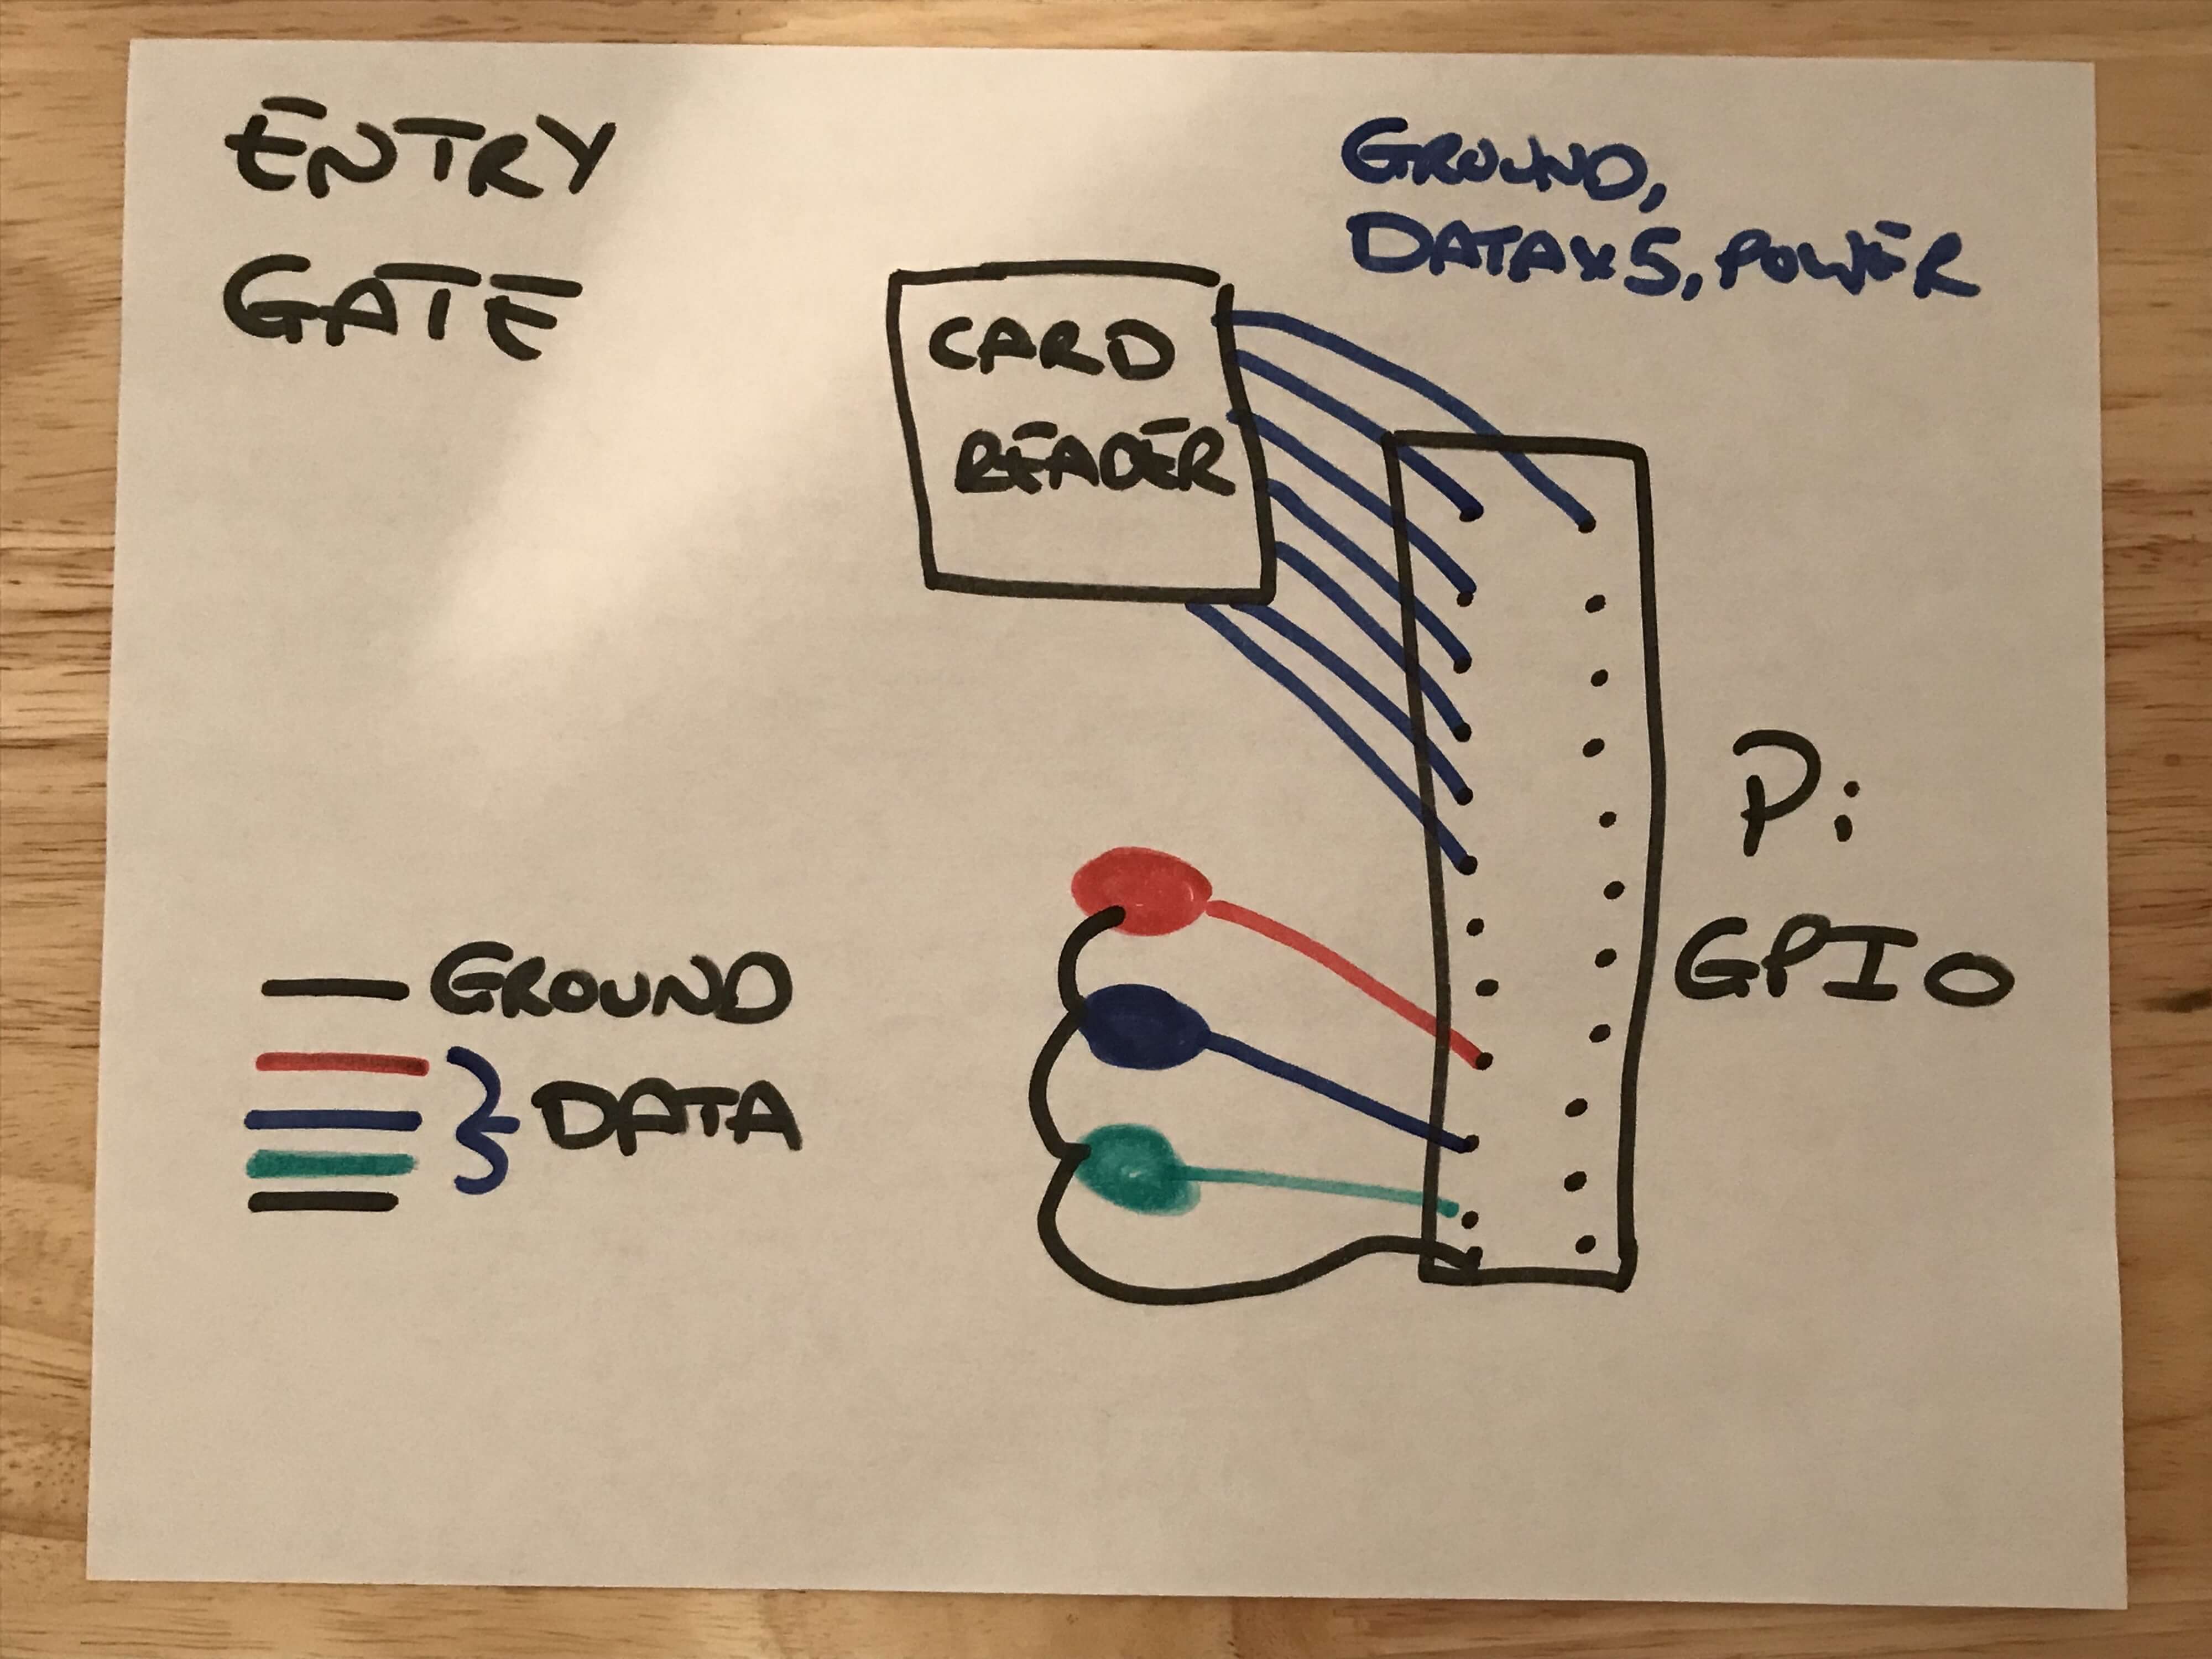 ENTRY
GATE
GROUND,
DATAx5, POWER
CARD
READER
Pi
GPIO
GROUND
DATA